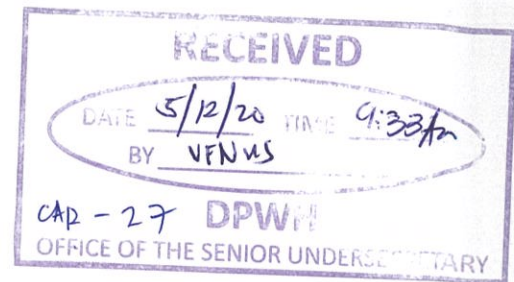 RECEIVED
DATE 5/12/20 TIME 9:33Am
BY VENUS
CAR - 27 DPWH
OFFICE OF THE SENIOR UNDERSECRETARY